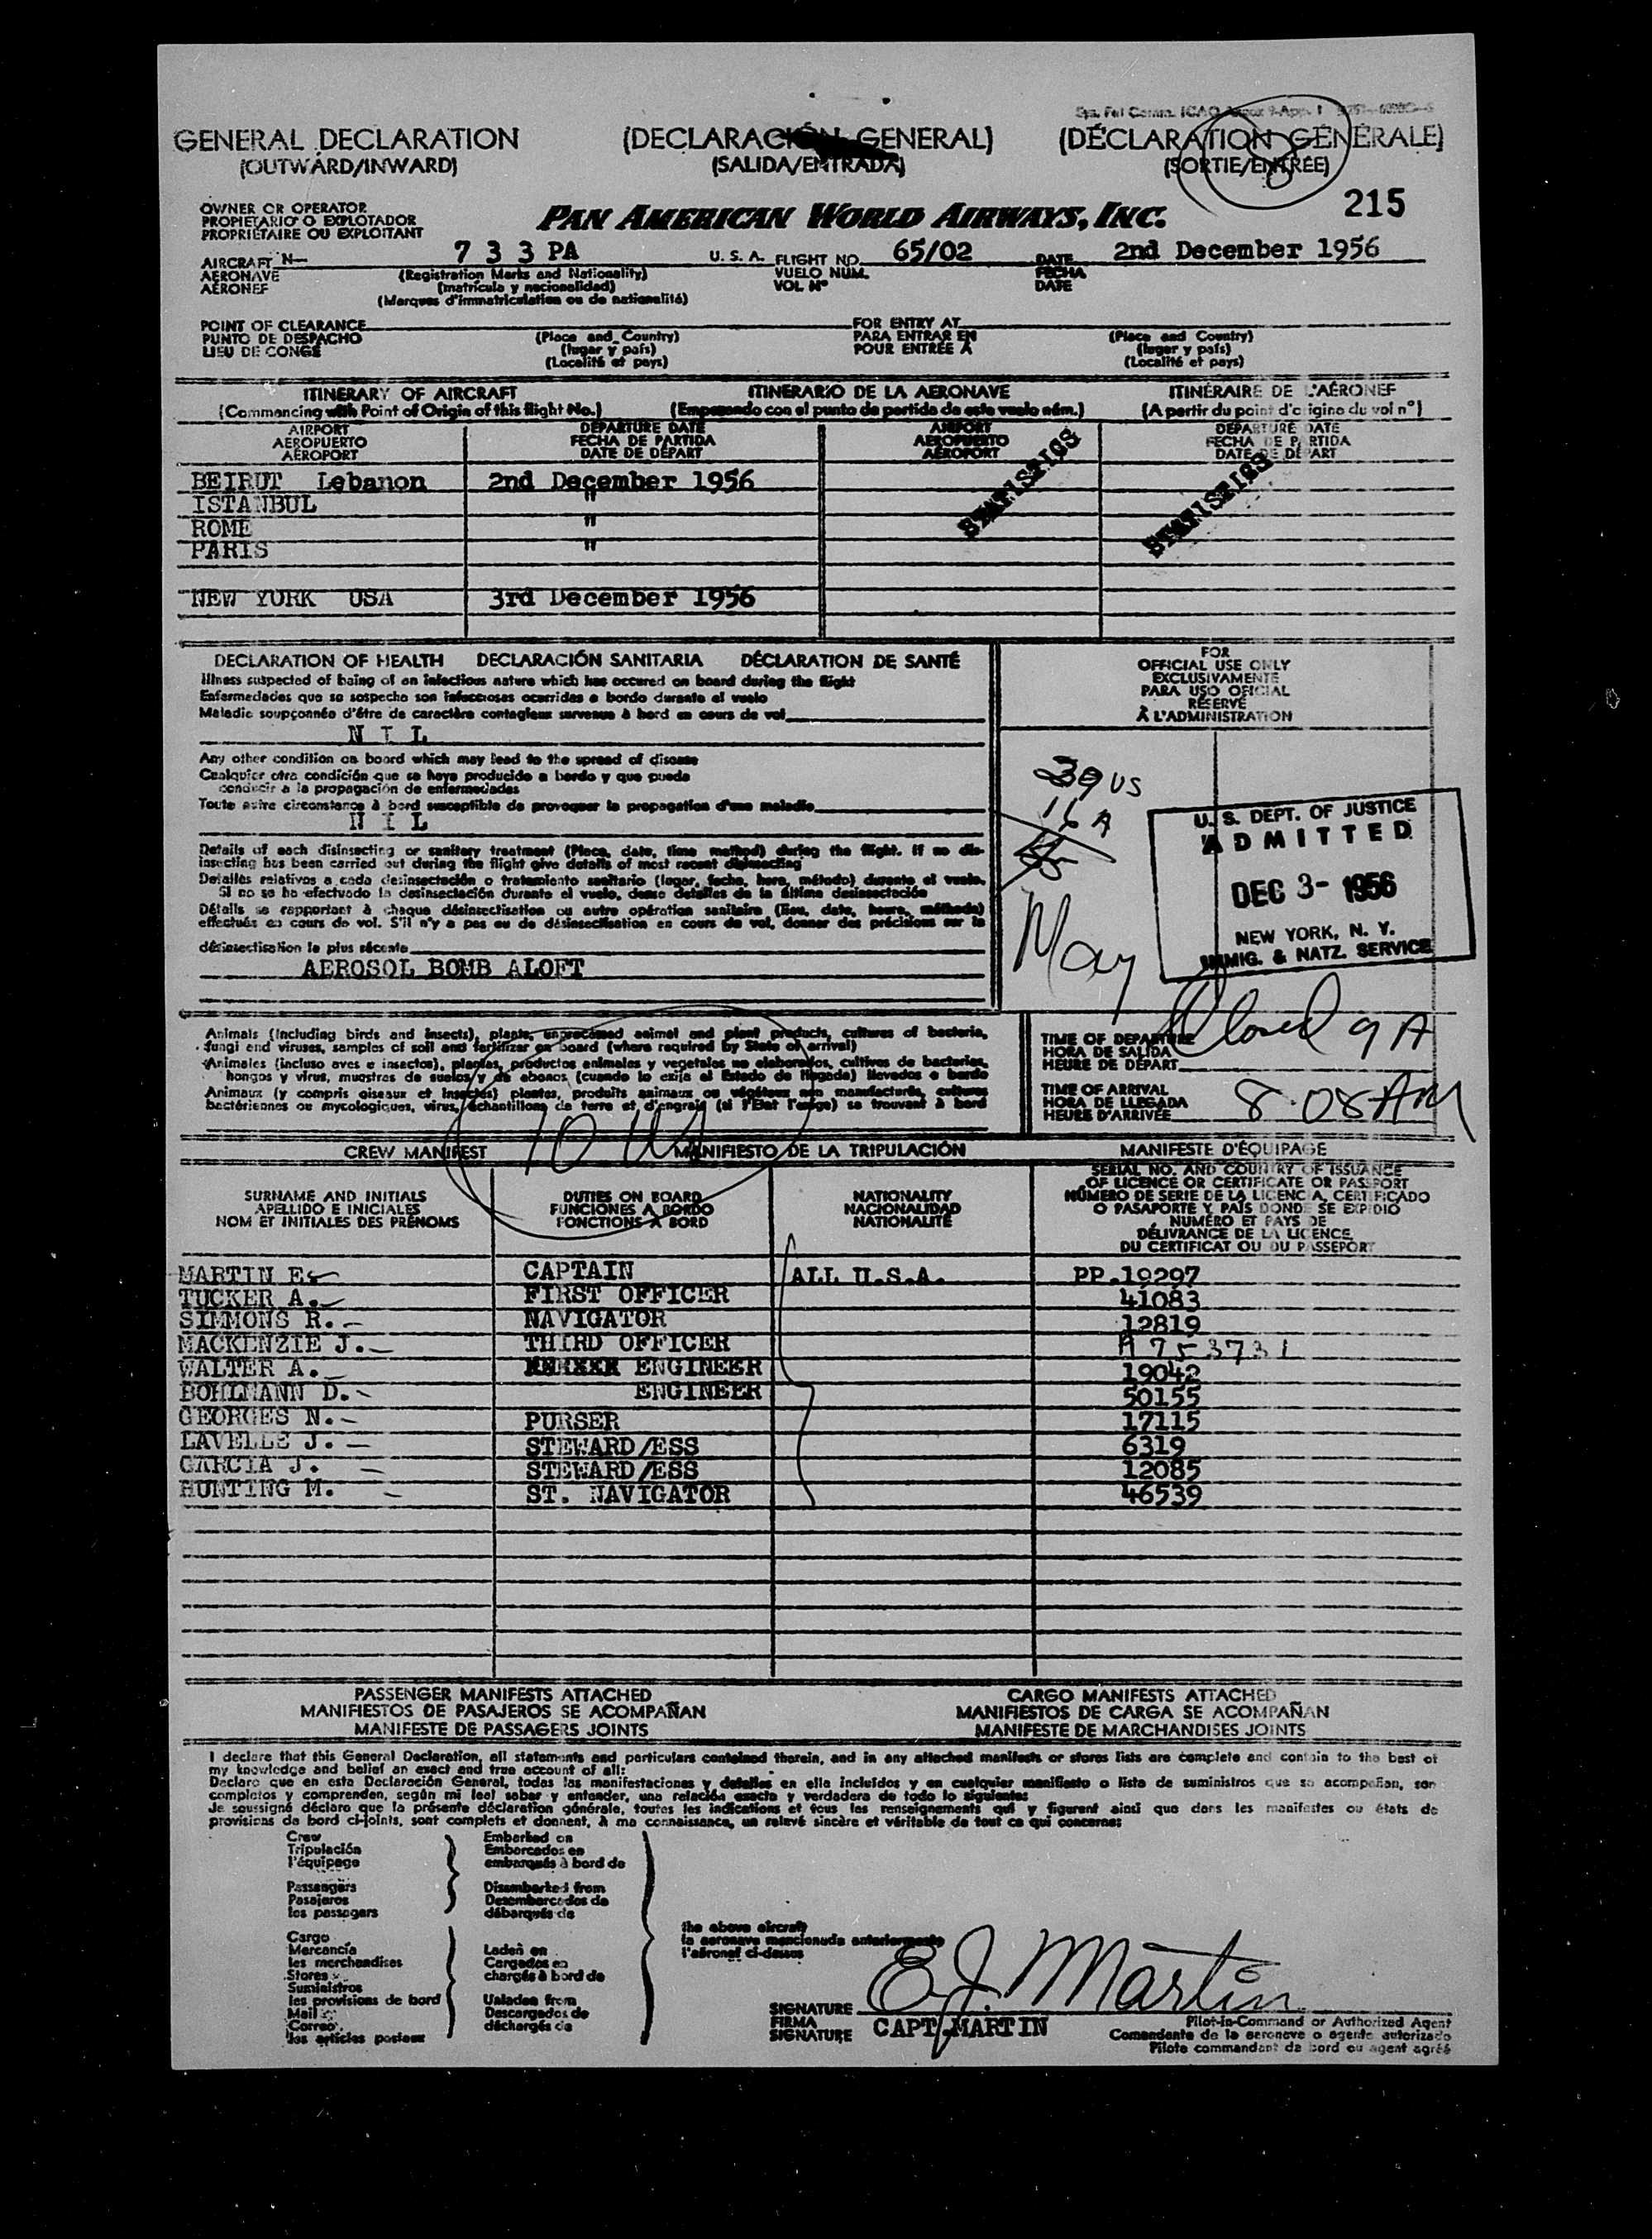 GENERAL DECLARATION (DECLARACIÓN GENERAL) (DÉCLARATION GÉNÉRALE)
(OUTWARD/INWARD) (SALIDA/ENTRADA) (SORTIE/ENTRÉE)
215
OWNER OR OPERATOR
PROPIETARIO O EXPLOTADOR
PROPRIÉTAIRE OU EXPLOITANT
PAN AMERICAN WORLD AIRWAYS, INC.
AIRCRAFT N- 7 3 3 PA U. S. A. FLIGHT NO. 65/02 DATE 2nd December 1956
AERONAVE (Registration Marks and Nationality) VUELO NUM. FECHA
AÉRONEF (matrícula y nacionalidad) VOL Nº DATE
(Marques d'immatriculation ou de nationalité)
POINT OF CLEARANCE FOR ENTRY AT
PUNTO DE DESPACHO (Place and Country) PARA ENTRAR EN (Place and Country)
LIEU DE CONGÉ (lugar y país) POUR ENTRÉE À (lugar y país)
(Localité et pays) (Localité et pays)
ITINERARY OF AIRCRAFT ITINERARIO DE LA AERONAVE ITINÉRAIRE DE L'AÉRONEF
(Commencing with Point of Origin of this flight No.) (Empezando con el punto de partida de este vuelo núm.) (A partir du point d'origine du vol nº)
AIRPORT DEPARTURE DATE AIRPORT DEPARTURE DATE
AEROPUERTO FECHA DE PARTIDA AEROPUERTO FECHA DE PARTIDA
AÉROPORT DATE DE DÉPART AÉROPORT DATE DE DÉPART
STATISTICS STATISTICS
BEIRUT Lebanon 2nd December 1956
ISTANBUL "
ROME "
PARIS "
NEW YORK USA 3rd December 1956
DECLARATION OF HEALTH DECLARACIÓN SANITARIA DÉCLARATION DE SANTÉ
Illness suspected of being of an infectious nature which has occured on board during the flight
Enfermedades que se sospecha son infecciosas ocurridas a bordo durante el vuelo
Maladie soupçonnée d'être de caractère contagieux survenue à bord en cours de vol
N I L
Any other condition on board which may lead to the spread of disease
Cualquier otra condición que se haya producido a bordo y que pueda
conducir a la propagación de enfermedades
Toute autre circonstance à bord susceptible de provoquer la propagation d'une maladie
N I L
Details of each disinsecting or sanitary treatment (Place, date, time method) during the flight. If no dis-
insecting has been carried out during the flight give details of most recent disinsecting
Detalles relativos a cada desinsectación o tratamiento sanitario (lugar, fecha, hora, método) durante el vuelo.
Si no se ha efectuado la desinsectación durante el vuelo, dense detalles de la última desinsectación
Détails se rapportant à chaque désinsectisation ou autre opération sanitaire (lieu, date, heure, méthode)
effectués en cours de vol. S'il n'y a pas eu de désinsectisation en cours de vol, donner des précisions sur la
désinsectisation la plus récente
AEROSOL BOMB ALOFT
FOR
OFFICIAL USE ONLY
EXCLUSIVAMENTE
PARA USO OFICIAL
RÉSERVÉ
À L'ADMINISTRATION
39 US
16 A
May
U. S. DEPT. OF JUSTICE
ADMITTED
DEC 3- 1956
NEW YORK, N. Y.
IMMIG. & NATZ. SERVICE
Closed 9 A
Animals (including birds and insects), plants, unprocessed animal and plant products, cultures of bacteria,
fungi and viruses, samples of soil and fertilizer on board (where required by State of arrival)
Animales (incluso aves e insectos), plantas, productos animales y vegetales no elaborados, cultivos de bacterias,
hongos y virus, muestras de suelos y de abonos (cuando lo exija el Estado de llegada) llevados a bordo
Animaux (y compris oiseaux et insectes) plantes, produits animaux ou végétaux non manufacturés, cultures
bactériennes ou mycologiques, virus, échantillons de terre et d'engrais (si l'Etat l'exige) se trouvant à bord
TIME OF DEPARTURE
HORA DE SALIDA
HEURE DE DÉPART
TIME OF ARRIVAL
HORA DE LLEGADA
HEURE D'ARRIVÉE 8:08 AM
CREW MANIFEST MANIFIESTO DE LA TRIPULACIÓN MANIFESTE D'ÉQUIPAGE
SURNAME AND INITIALS
APELLIDO E INICIALES
NOM ET INITIALES DES PRÉNOMS
DUTIES ON BOARD
FUNCIONES A BORDO
FONCTIONS A BORD
NATIONALITY
NACIONALIDAD
NATIONALITÉ
SERIAL NO. AND COUNTRY OF ISSUANCE
OF LICENCE OR CERTIFICATE OR PASSPORT
NÚMERO DE SERIE DE LA LICENCIA, CERTIFICADO
O PASAPORTE Y PAÍS DONDE SE EXPIDIÓ
NUMÉRO ET PAYS DE
DÉLIVRANCE DE LA LICENCE,
DU CERTIFICAT OU DU PASSEPORT
MARTIN E. CAPTAIN ALL U.S.A. PP.19297
TUCKER A. FIRST OFFICER 41083
SIMMONS R. NAVIGATOR 12819
MACKENZIE J. THIRD OFFICER A 753731
WALTER A. ENGINEER 19042
BOHLMANN D. ENGINEER 50155
GEORGES N. PURSER 17115
LAVELLE J. STEWARD/ESS 6319
GARCIA J. STEWARD/ESS 12085
HUNTING M. ST. NAVIGATOR 46539
PASSENGER MANIFESTS ATTACHED CARGO MANIFESTS ATTACHED
MANIFIESTOS DE PASAJEROS SE ACOMPAÑAN MANIFIESTOS DE CARGA SE ACOMPAÑAN
MANIFESTE DE PASSAGERS JOINTS MANIFESTE DE MARCHANDISES JOINTS
I declare that this General Declaration, all statements and particulars contained therein, and in any attached manifests or stores lists are complete and contain to the best of
my knowledge and belief an exact and true account of all:
Declaro que en esta Declaración General, todas las manifestaciones y detalles en ella incluídos y en cualquier manifiesto o lista de suministros que se acompañan, son
completos y comprenden, según mi leal saber y entender, una relación exacta y verdadera de todo lo siguiente:
Je soussigné déclare que la présente déclaration générale, toutes les indications et tous les renseignements qui y figurent ainsi que dans les manifestes ou états de
provisions de bord ci-joints, sont complets et donnent, à ma connaissance, un relevé sincère et véritable de tout ce qui concerne:
Crew Embarked on
Tripulación Embarcados en
l'équipage embarqués à bord de
Passengers Disembarked from
Pasajeros Desembarcados de
les passagers débarqués de
Cargo
Mercancía Laden on
les marchandises Cargados en
Stores chargés à bord de
Suministros
les provisions de bord Unladen from
Mail Descargados de
Correo déchargés de
les articles postaux
the above aircraft
la aeronave mencionada anteriormente
l'aéronef ci-dessus
E. J. Martin
SIGNATURE
FIRMA
SIGNATURE
CAPT. MARTIN
Pilot-in-Command or Authorized Agent
Comandante de la aeronave o agente autorizado
Pilote commandant de bord ou agent agréé